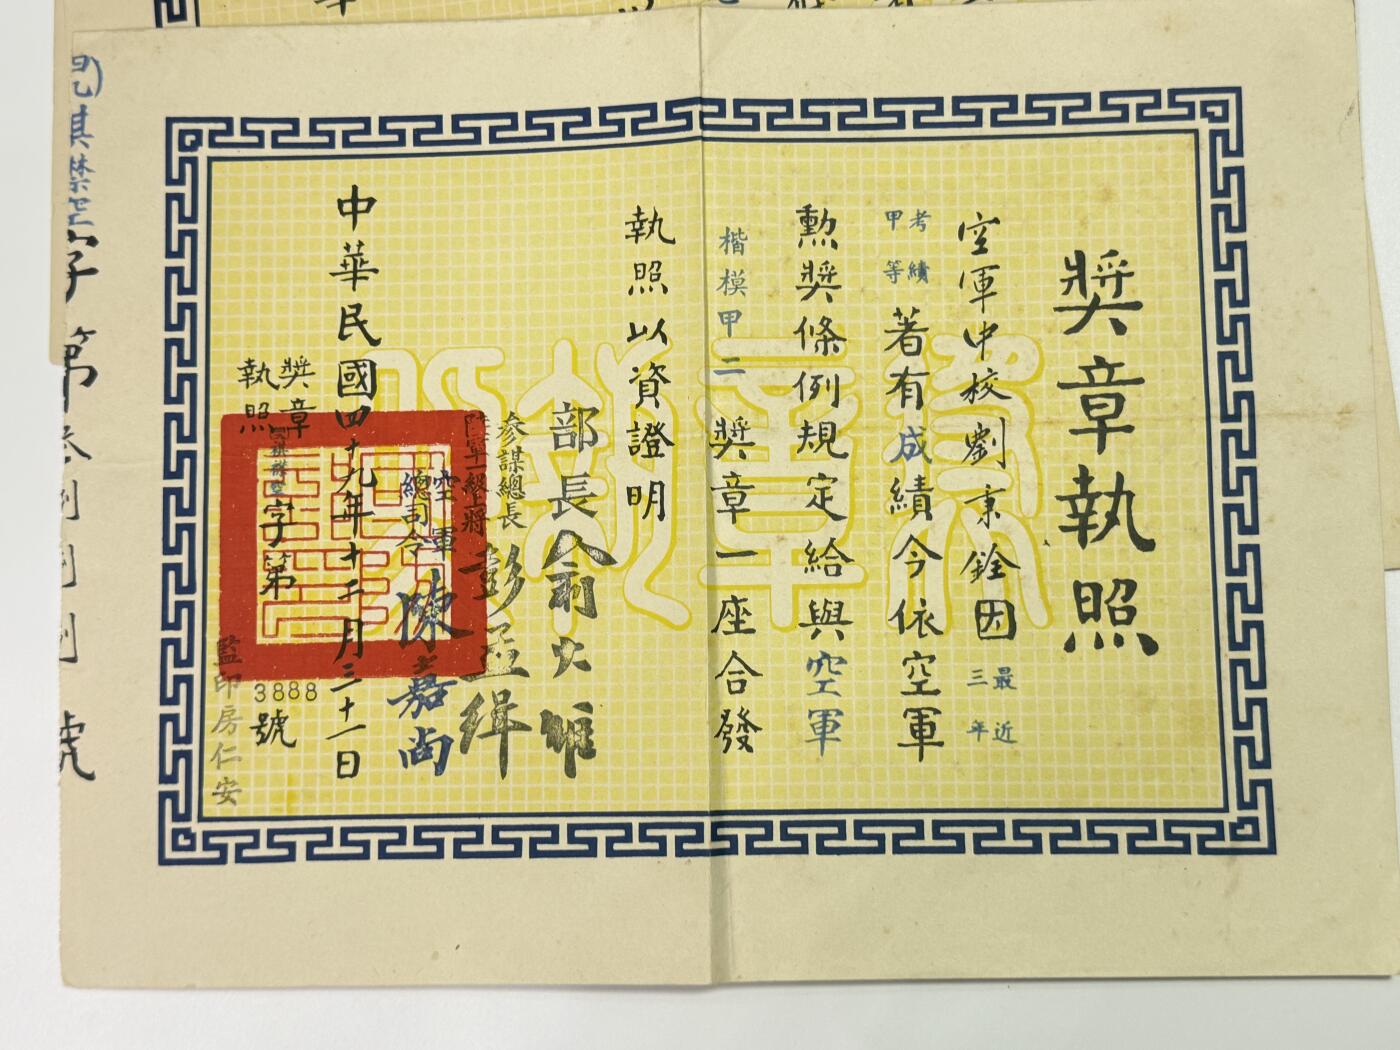 獎章執照
空軍中校劉秉銓因最近三年
考績甲等著有成績今依空軍
勳獎條例規定給與空軍
楷模甲二獎章一座合發
執照以資證明
部長俞大維
參謀總長陸軍一級上將彭孟緝
空軍總司令陳嘉尚
中華民國四十九年十二月三十一日
獎章執照
字第3888號
監印房仁安
獎章執照
字第
號